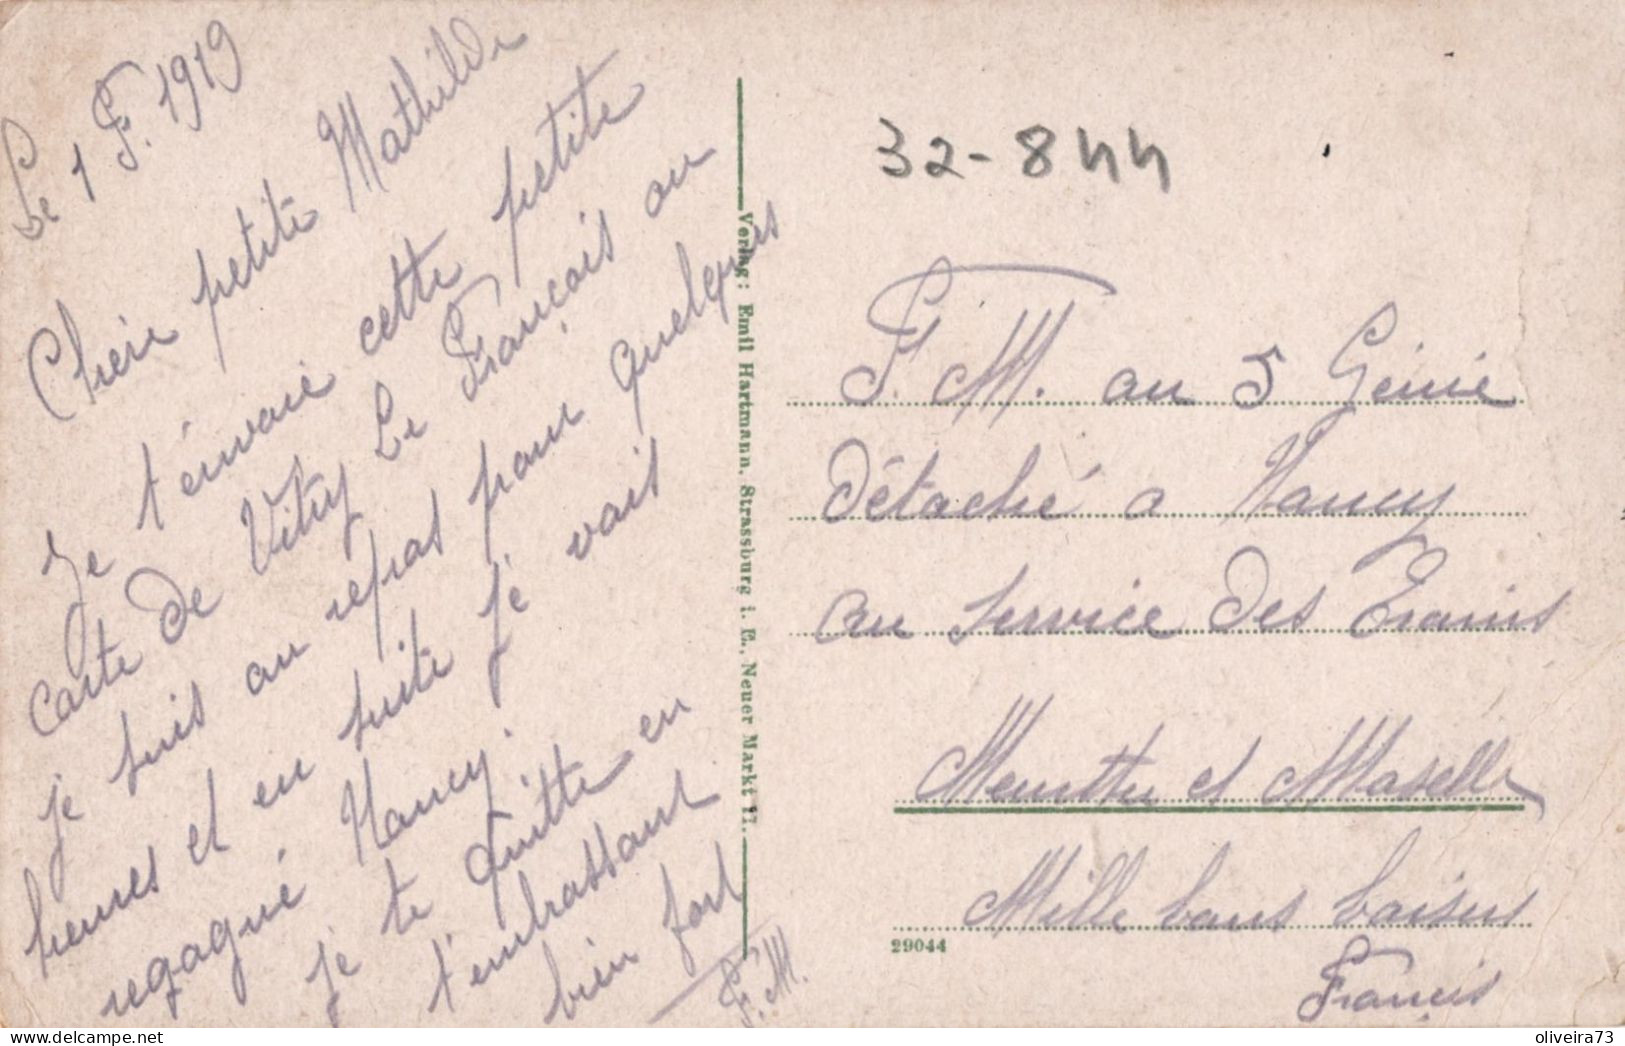 Le 1 F. 1919
Cherie petite Mathilde
Je t'envoie cette petite
carte de Vitry Le François ou
je suis au repas pour quelques
heures et en suite je vais
regagné Nancy.
je te quitte en
t'embrassant
bien fort
F. M.
Verlag: Emil Hartmann, Strassburg i. E., Neuer Markt 11.
32-844
F. M. au 5 Génie
Détaché a Nancy
au service des Trains
Meurthe et Moselle
Mille bons baisers
29044
Francis
delcampe.net
oliveira73